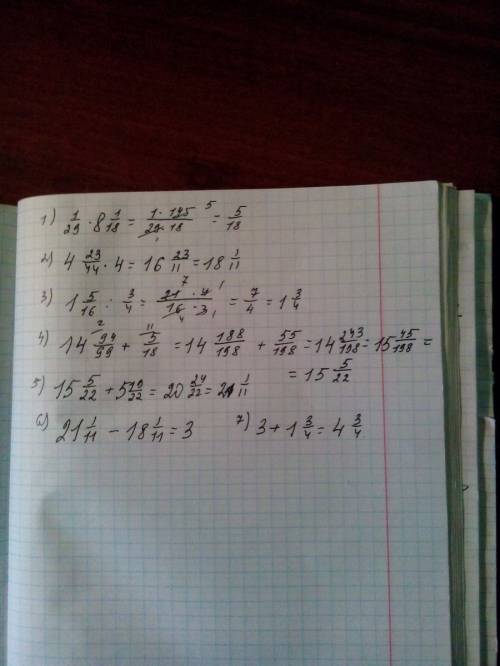 1) 1/29 · 8 1/18 = 1·145/29·18 = 5/18
2) 4 23/44 · 4 = 16 23/11 = 18 1/11
3) 1 5/16 : 3/4 = 21·4/16·3 = 7/4 = 1 3/4
4) 14 94/99 + 5/18 = 14 188/198 + 55/198 = 14 243/198 = 15 45/198 =
= 15 5/22
5) 15 5/22 + 5 19/22 = 20 24/22 = 21 1/11
6) 21 1/11 - 18 1/11 = 3
7) 3 + 1 3/4 = 4 3/4